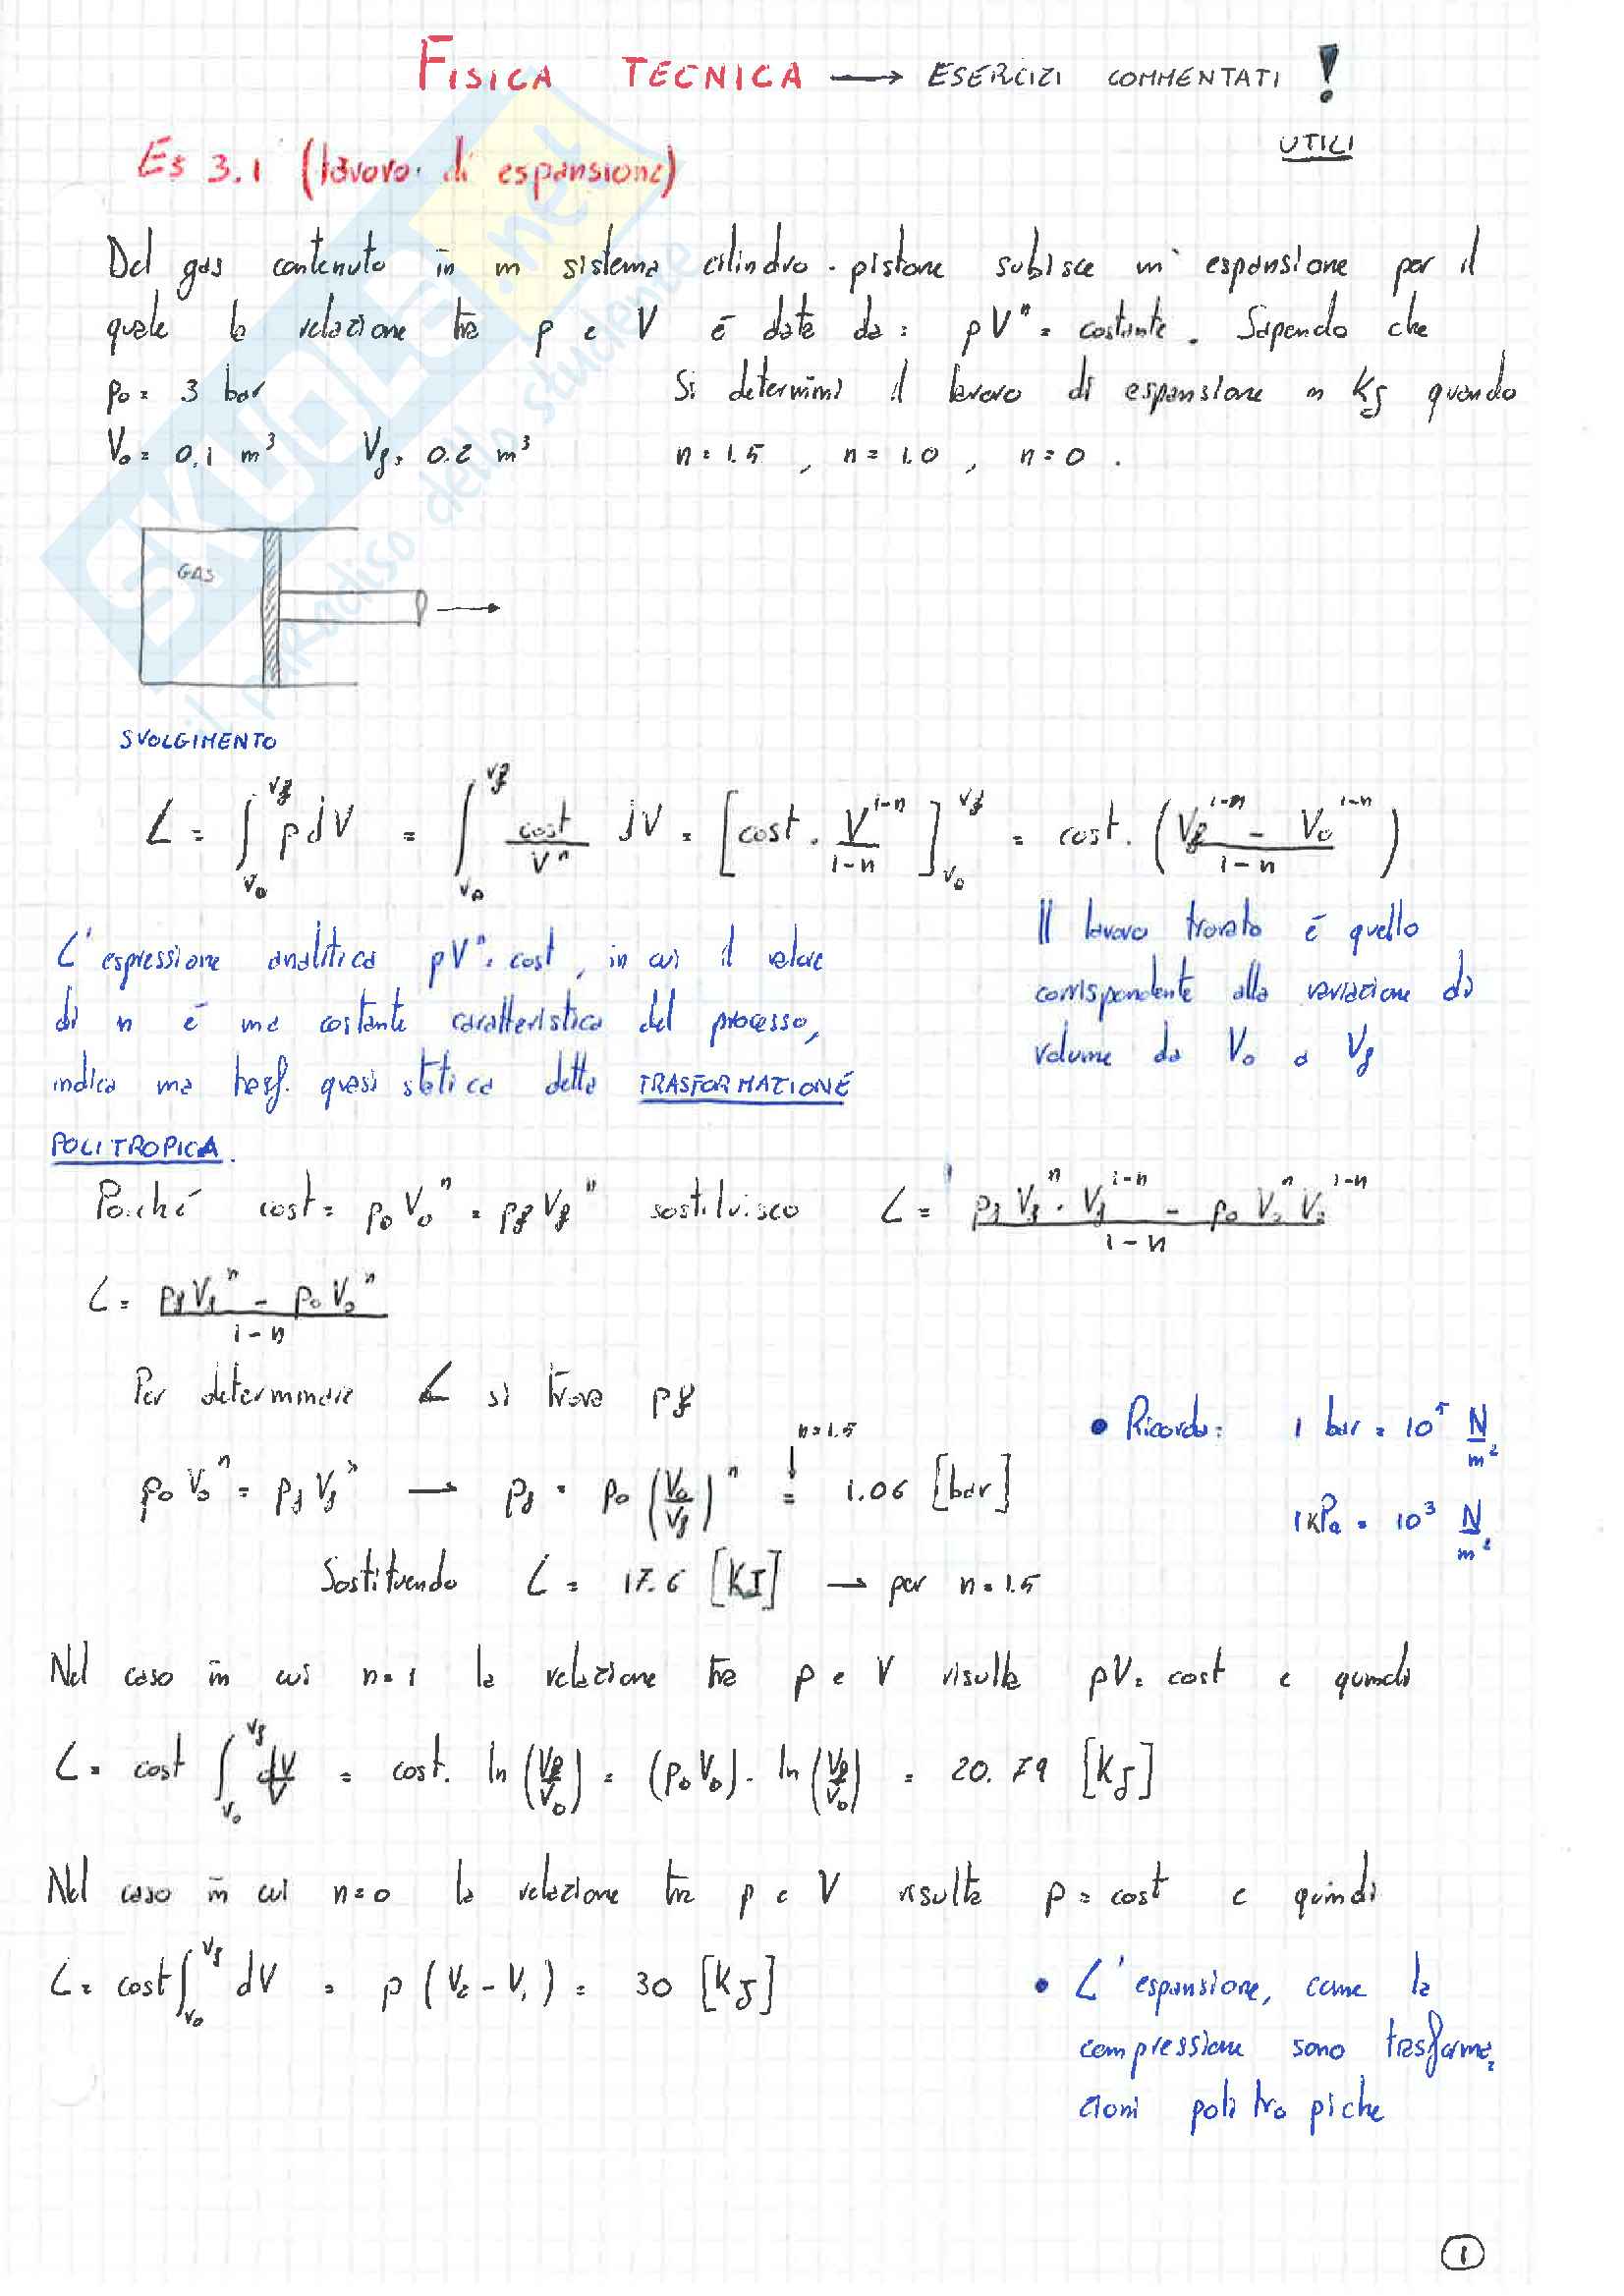 FISICA TECNICA → ESERCIZI COMMENTATI !
UTILI
Es 3.1 (lavoro di espansione)
Del gas contenuto in un sistema cilindro-pistone subisce un' espansione per il
quale la relazione tra p e V è data da: pVⁿ = costante. Sapendo che
p₀ = 3 bar Si determini il lavoro di espansione in KJ quando
V₀ = 0.1 m³ Vf = 0.2 m³ n = 1.5 , n = 1.0 , n = 0 .
GAS
SVOLGIMENTO
L = ∫_{V₀}^{Vf} p dV = ∫_{V₀}^{Vf} cost/Vⁿ dV = [cost · V^{1-n}/(1-n)]_{V₀}^{Vf} = cost · ((Vf^{1-n} - V₀^{1-n})/(1-n))
L'espressione analitica pVⁿ = cost, in cui il valore
di n è una costante caratteristica del processo,
indica una trasf. quasi statica detta TRASFORMAZIONE
POLITROPICA.
Il lavoro trovato è quello
corrispondente alla variazione di
volume da V₀ a Vf
Poiché cost = p₀V₀ⁿ = pfVfⁿ sostituisco L = (pf Vfⁿ · Vf^{1-n} - p₀ V₀ⁿ V₀^{1-n})/(1-n)
L = (pfVfⁿ - p₀V₀ⁿ)/(1-n)
Per determinare L si trova pf
n=1.5
p₀V₀ⁿ = pfVfⁿ → pf = p₀ (V₀/Vf)ⁿ = 1.06 [bar]
• Ricorda: 1 bar = 10⁵ N/m²
1kPa = 10³ N/m²
Sostituendo L = 17.6 [KJ] → per n=1.5
Nel caso in cui n=1 la relazione tra p e V risulta pV = cost e quindi
L = cost ∫_{V₀}^{Vf} dV/V = cost · ln(Vf/V₀) = (p₀V₀) · ln(Vf/V₀) = 20.79 [KJ]
Nel caso in cui n=0 la relazione tra p e V risulta p = cost e quindi
L = cost ∫_{V₀}^{Vf} dV = p (V₂ - V₁) = 30 [KJ]
• L'espansione, come la
compressione sono trasforma-
zioni politropiche
1
SKUOLA.net
il paradiso dello studente